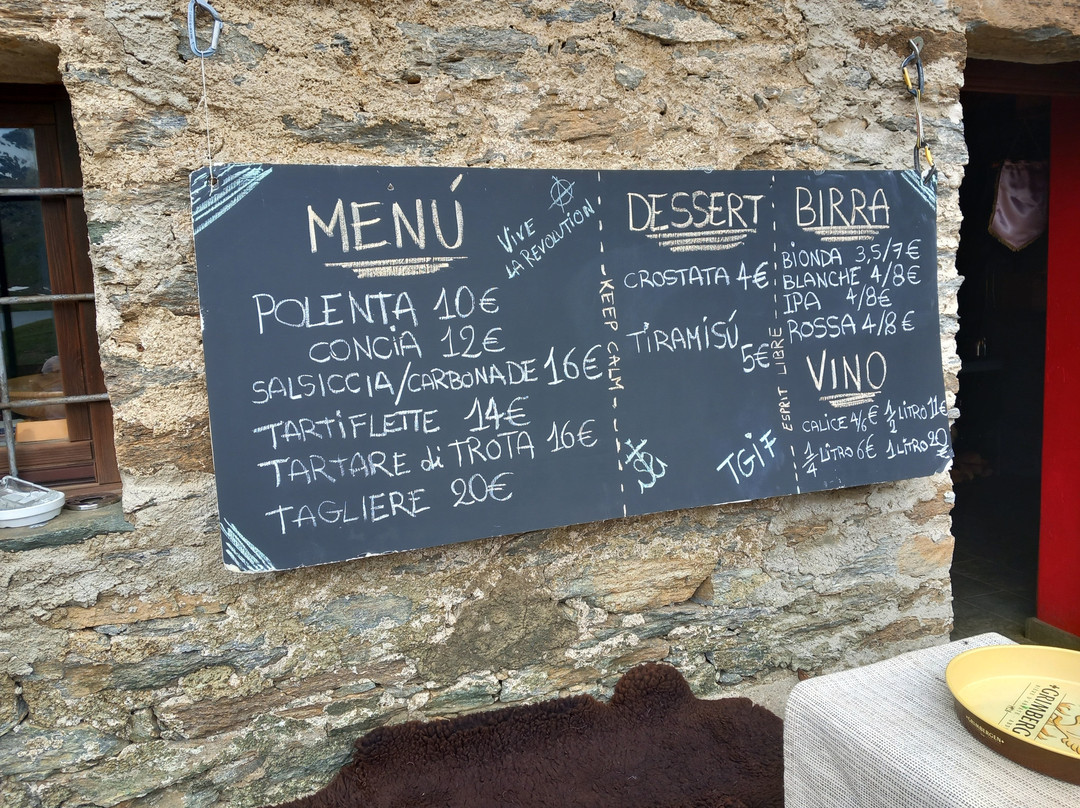 MENÚ
VIVE
LA REVOLUTION
POLENTA 10€
CONCIA 12€
SALSICCIA/CARBONADE 16€
TARTIFLETTE 14€
TARTARE di TROTA 16€
TAGLIERE 20€
KEEP CALM
DESSERT
CROSTATA 4€
TIRAMISÚ
5€
TGIF
ESPRIT LIBRE
BIRRA
BIONDA 3,5/7€
BLANCHE 4/8€
IPA 4/8€
ROSSA 4/8€
VINO
CALICE 4/6€ ½ LITRO 11€
¼ LITRO 6€ 1 LITRO 20€
GRIMBERGEN